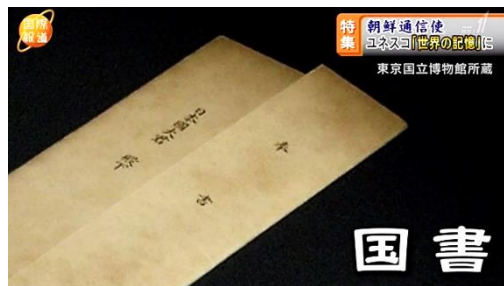 国際報道
特集
朝鮮通信使
ユネスコ「世界の記憶」に
東京国立博物館所蔵
日本國大君 殿下
奉書
国書